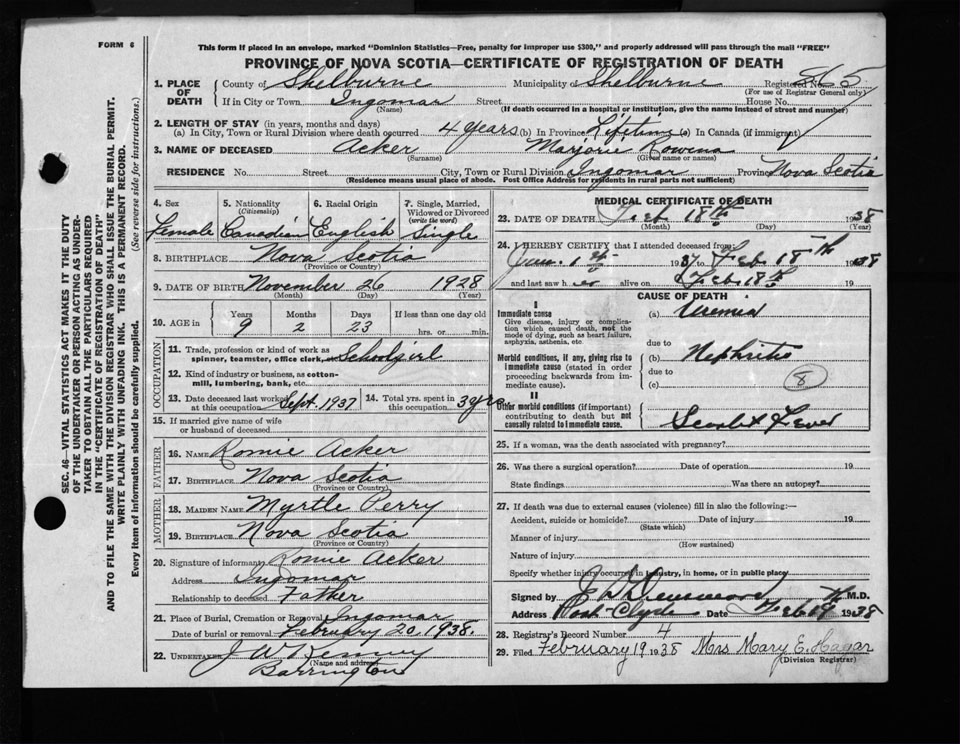 FORM 6
This form if placed in an envelope, marked "Dominion Statistics—Free, penalty for improper use $300," and properly addressed will pass through the mail "FREE"
PROVINCE OF NOVA SCOTIA—CERTIFICATE OF REGISTRATION OF DEATH
SEC. 46—VITAL STATISTICS ACT MAKES IT THE DUTY
OF THE UNDERTAKER OR PERSON ACTING AS UNDER-
TAKER TO OBTAIN ALL THE PARTICULARS REQUIRED
IN THE "CERTIFICATE OF REGISTRATION OF DEATH"
AND TO FILE THE SAME WITH THE DIVISION REGISTRAR WHO SHALL ISSUE THE BURIAL PERMIT.
WRITE PLAINLY WITH UNFADING INK. THIS IS A PERMANENT RECORD.
Every item of information should be carefully supplied. (See reverse side for instructions.)
1. PLACE OF DEATH County of Shelburne Municipality of Shelburne Registered No. 865
(For use of Registrar General only)
If in City or Town Ingomar Street House No.
(Name) (If death occurred in a hospital or institution, give the name instead of street and number)
2. LENGTH OF STAY (in years, months and days)
(a) In City, Town or Rural Division where death occurred 4 years (b) In Province Lifetime (c) In Canada (if immigrant)
3. NAME OF DECEASED Acker Marjorie Rowena
(Surname) (Given name or names)
RESIDENCE No. Street City, Town or Rural Division Ingomar Province Nova Scotia
(Residence means usual place of abode. Post Office Address for residents in rural parts not sufficient)
4. Sex 5. Nationality (Citizenship) 6. Racial Origin 7. Single, Married, Widowed or Divorced (write the word)
Female Canadian English Single
8. BIRTHPLACE Nova Scotia
(Province or Country)
9. DATE OF BIRTH November 26 1928
(Month) (Day) (Year)
10. AGE in Years Months Days If less than one day old
9 2 23 hrs. or min.
OCCUPATION
11. Trade, profession or kind of work as spinner, teamster, office clerk, etc. Schoolgirl
12. Kind of industry or business, as cotton-mill, lumbering, bank, etc.
13. Date deceased last worked at this occupation Sept. 1937 14. Total yrs. spent in this occupation 3 yrs.
15. If married give name of wife or husband of deceased
FATHER
16. NAME Romie Acker
17. BIRTHPLACE Nova Scotia
(Province or Country)
MOTHER
18. MAIDEN NAME Myrtle Perry
19. BIRTHPLACE Nova Scotia
(Province or Country)
20. Signature of informant Romie Acker
Address Ingomar
Relationship to deceased Father
21. Place of Burial, Cremation or Removal Ingomar
Date of burial or removal February 20, 1938.
22. UNDERTAKER J W Kenney
(Name and address)
Barrington
MEDICAL CERTIFICATE OF DEATH
23. DATE OF DEATH Feb 18th 1938
(Month) (Day) (Year)
24. I HEREBY CERTIFY that I attended deceased from:
Jan. 1st 1937 to Feb. 18th 1938
and last saw her alive on Feb. 18th 19
CAUSE OF DEATH
I
Immediate cause
Give disease, injury or complication which caused death, not the mode of dying, such as heart failure, asphyxia, asthenia, etc.
(a) Uremia
due to
Morbid conditions, if any, giving rise to immediate cause (stated in order proceeding backwards from immediate cause).
(b) Nephritis
due to
(c) 8
II
Other morbid conditions (if important) contributing to death but not causally related to immediate cause.
Scarlet Fever
25. If a woman, was the death associated with pregnancy?
26. Was there a surgical operation? Date of operation 19
State findings Was there an autopsy?
27. If death was due to external causes (violence) fill in also the following:—
Accident, suicide or homicide? Date of injury 19
(State which)
Manner of injury
(How sustained)
Nature of injury
Specify whether injury occurred in industry, in home, or in public place
Signed by M.D.
Address Port Clyde Date Feb 19th 1938
28. Registrar's Record Number 4
29. Filed February 19 1938 Mrs Mary E. Hagar
(Division Registrar)